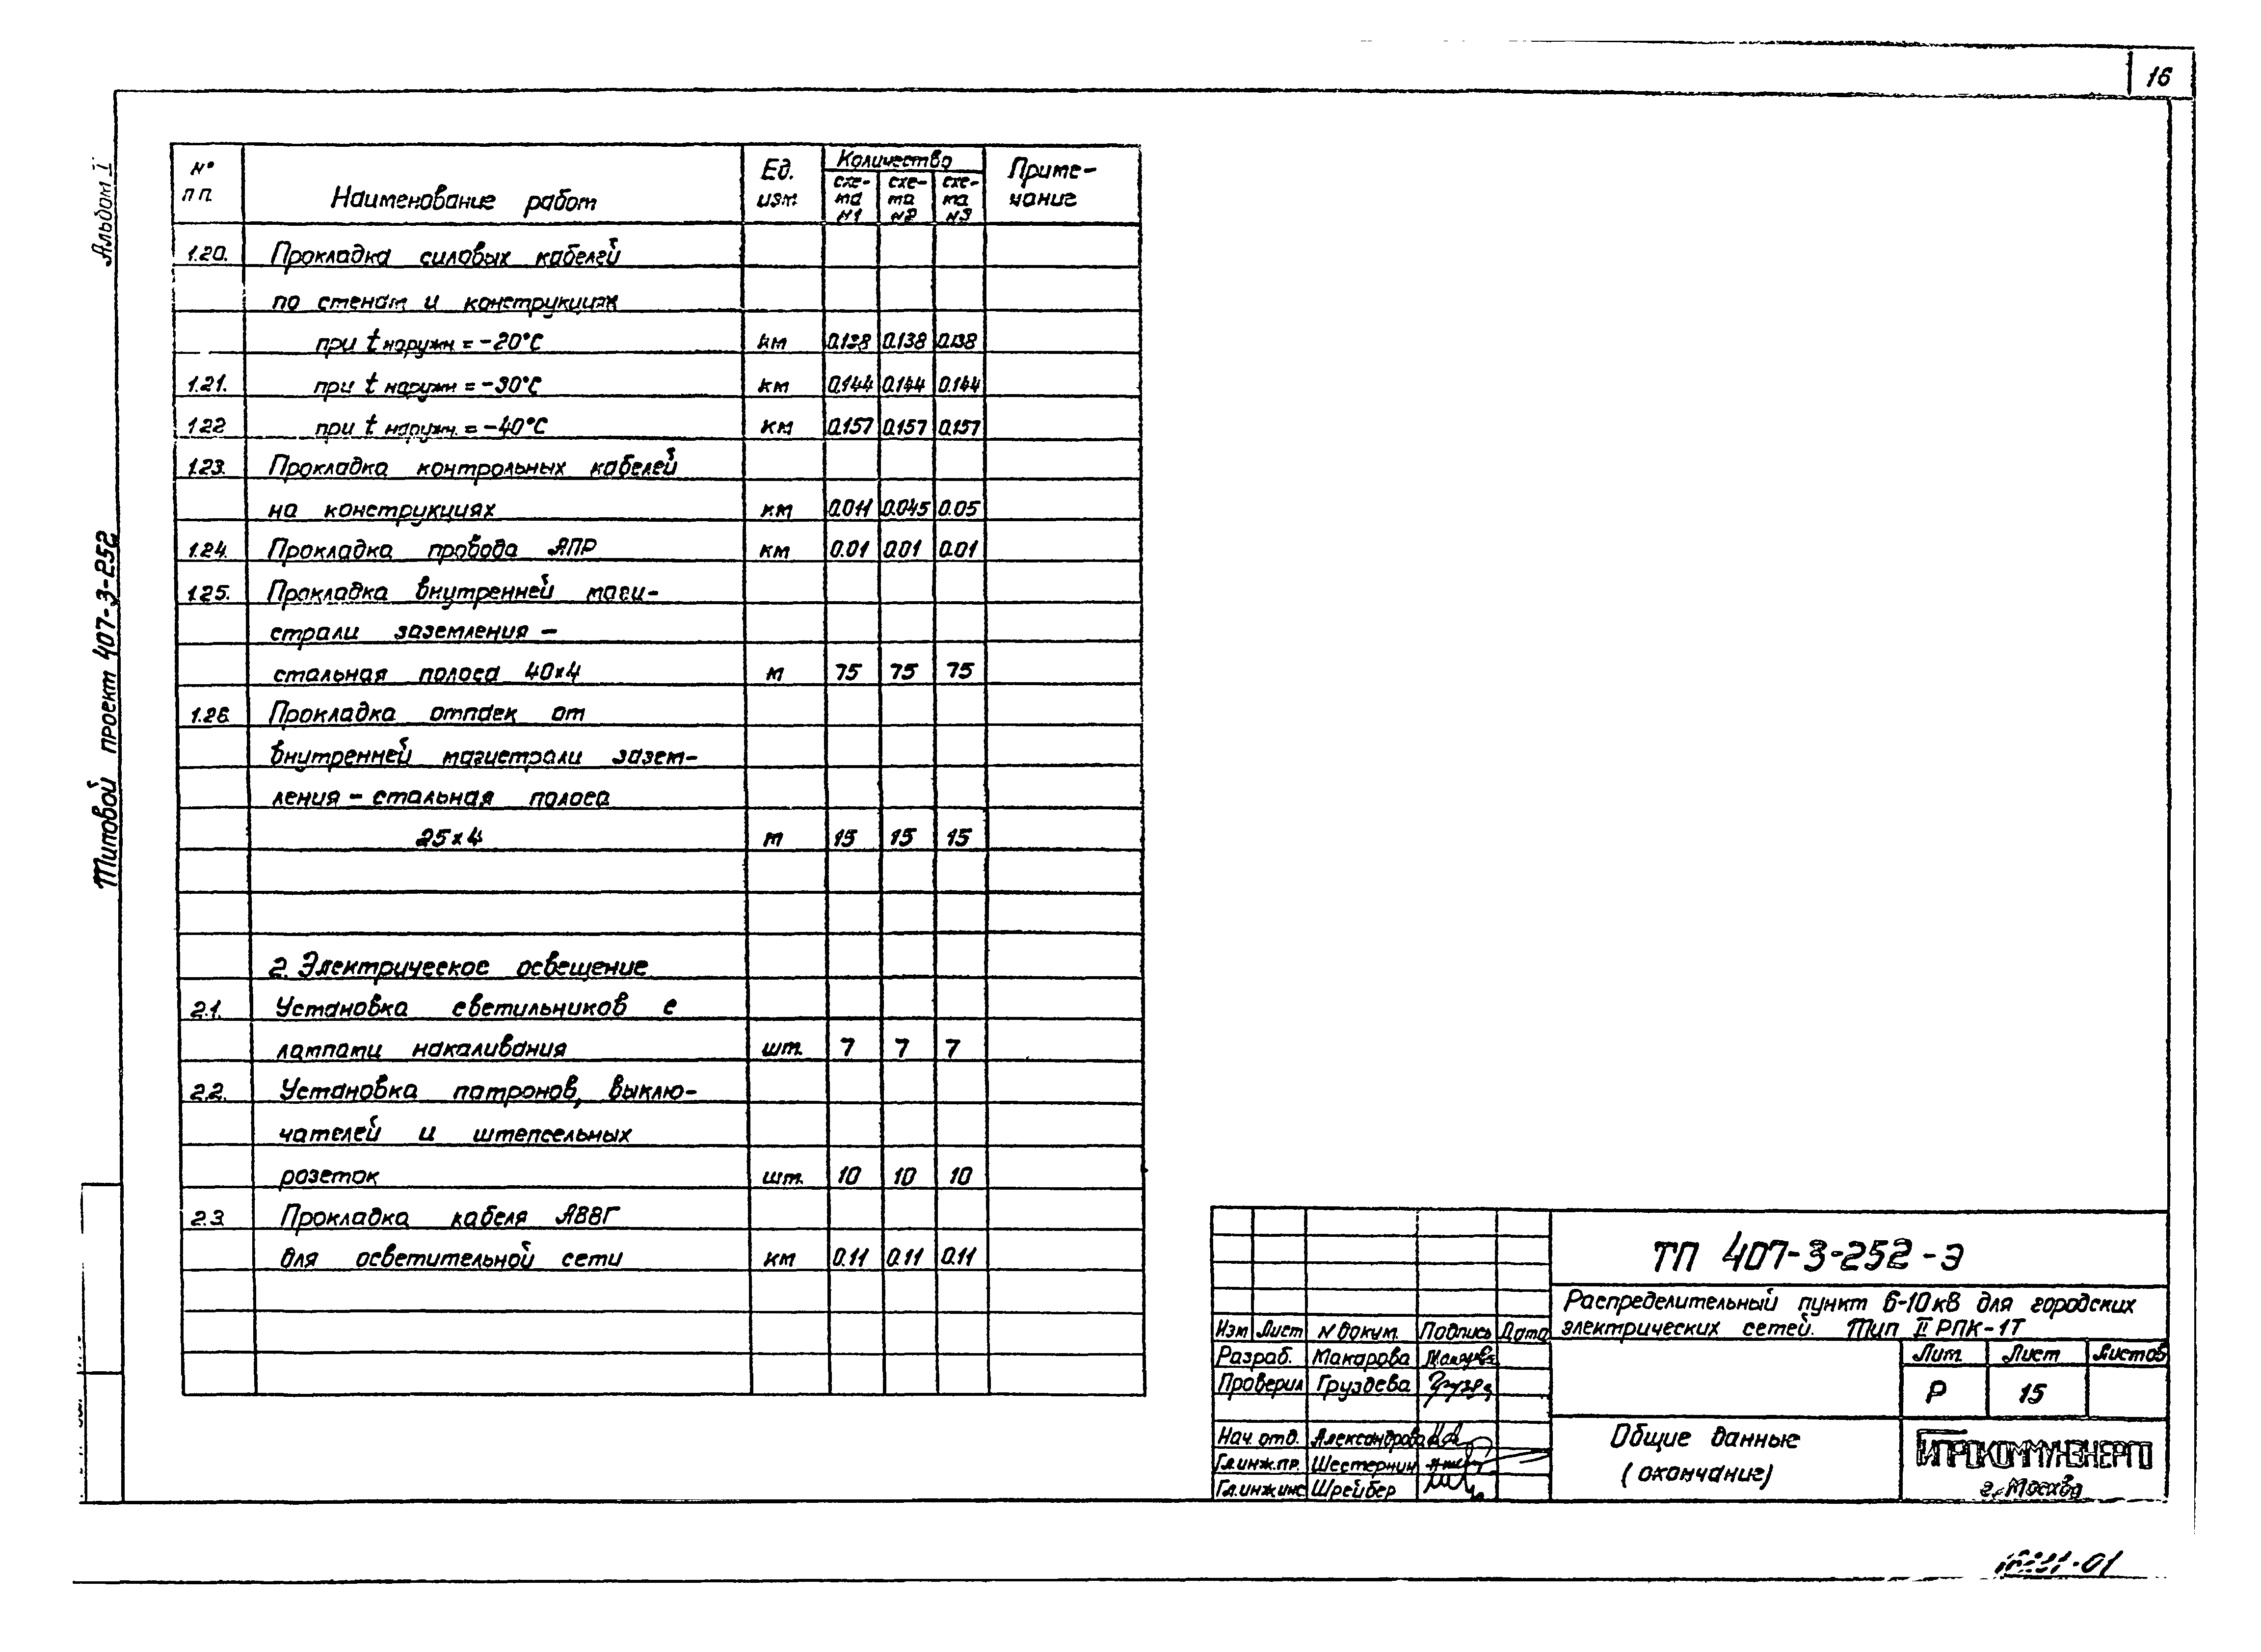 16
Альбом I
Типовой проект 407-3-252
№ п.п. Наименование работ Ед. изм Количество Приме-чание
схе-ма №1 схе-ма №2 схе-ма №3
1.20. Прокладка силовых кабелей
по стенам и конструкциях
при t наружн = -20°С км 0.138 0.138 0.138
1.21. при t наружн = -30°С км 0.144 0.144 0.144
1.22 при t наружн. = -40°С км 0.157 0.157 0.157
1.23. Прокладка контрольных кабелей
на конструкциях км 0.011 0.045 0.05
1.24. Прокладка провода АПР км 0.01 0.01 0.01
1.25. Прокладка внутренней маги-
страли заземления -
стальная полоса 40х4 м 75 75 75
1.26. Прокладка отпаек от
внутренней магистрали зазем-
ления - стальная полоса
25х4 м 15 15 15
2. Электрическое освещение
2.1. Установка светильников с
лампами накаливания шт. 7 7 7
2.2. Установка патронов, выклю-
чателей и штепсельных
розеток шт. 10 10 10
2.3. Прокладка кабеля АВВГ
для осветительной сети км 0.11 0.11 0.11
ТП 407-3-252-Э
Распределительный пункт 6-10кВ для городских
электрических сетей. Тип II РПК-1Т
Изм Лист N докум. Подпись Дата
Разраб. Макарова
Проверил Груздева
Нач. отд. Александрова
Гл.инж.пр. Шестернин
Гл.инж.инс Шрейбер
Лит. Лист Листов
Р 15
Общие данные
(окончание)
ГИПРОКОММУНЭНЕРГО
г. Москва